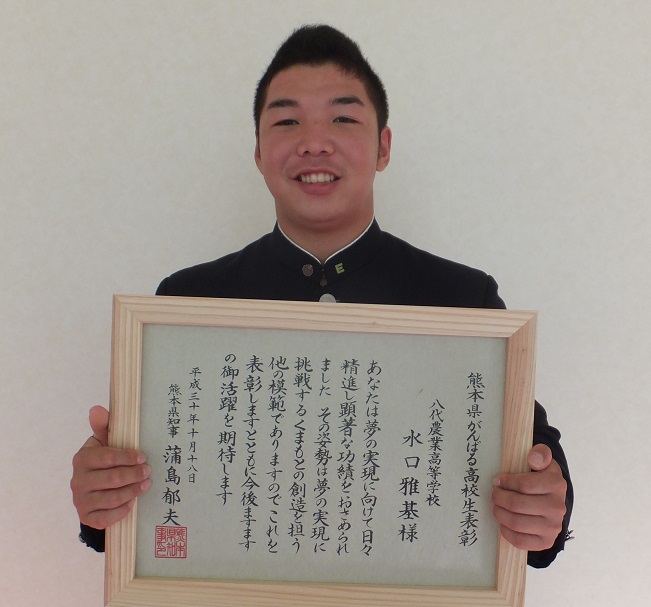 熊本県がんばる高校生表彰
八代農業高等学校
水口雅基様
あなたは夢の実現に向けて日々
精進し顕著な功績をおさめられ
ました その姿勢は夢の実現に
挑戦するくまもとの創造を担う
他の模範でありますのでこれを
表彰しますとともに今後ますます
の御活躍を期待します
平成三十年十月十八日
熊本県知事 蒲島郁夫
E